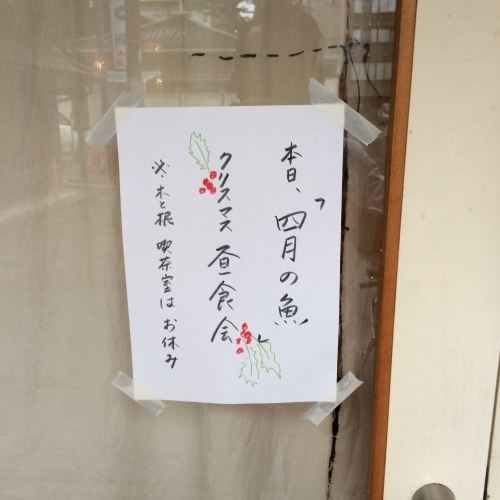 本日、「四月の魚」
クリスマス 昼食会
※木と根 喫茶室は お休み